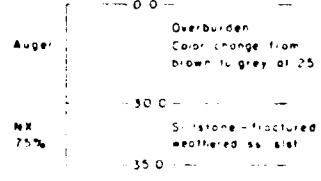 0.0
Overburden
Auger Color change from
brown to grey at 25
30.0
NX Siltstone - fractured
75% weathered ss.
35.0